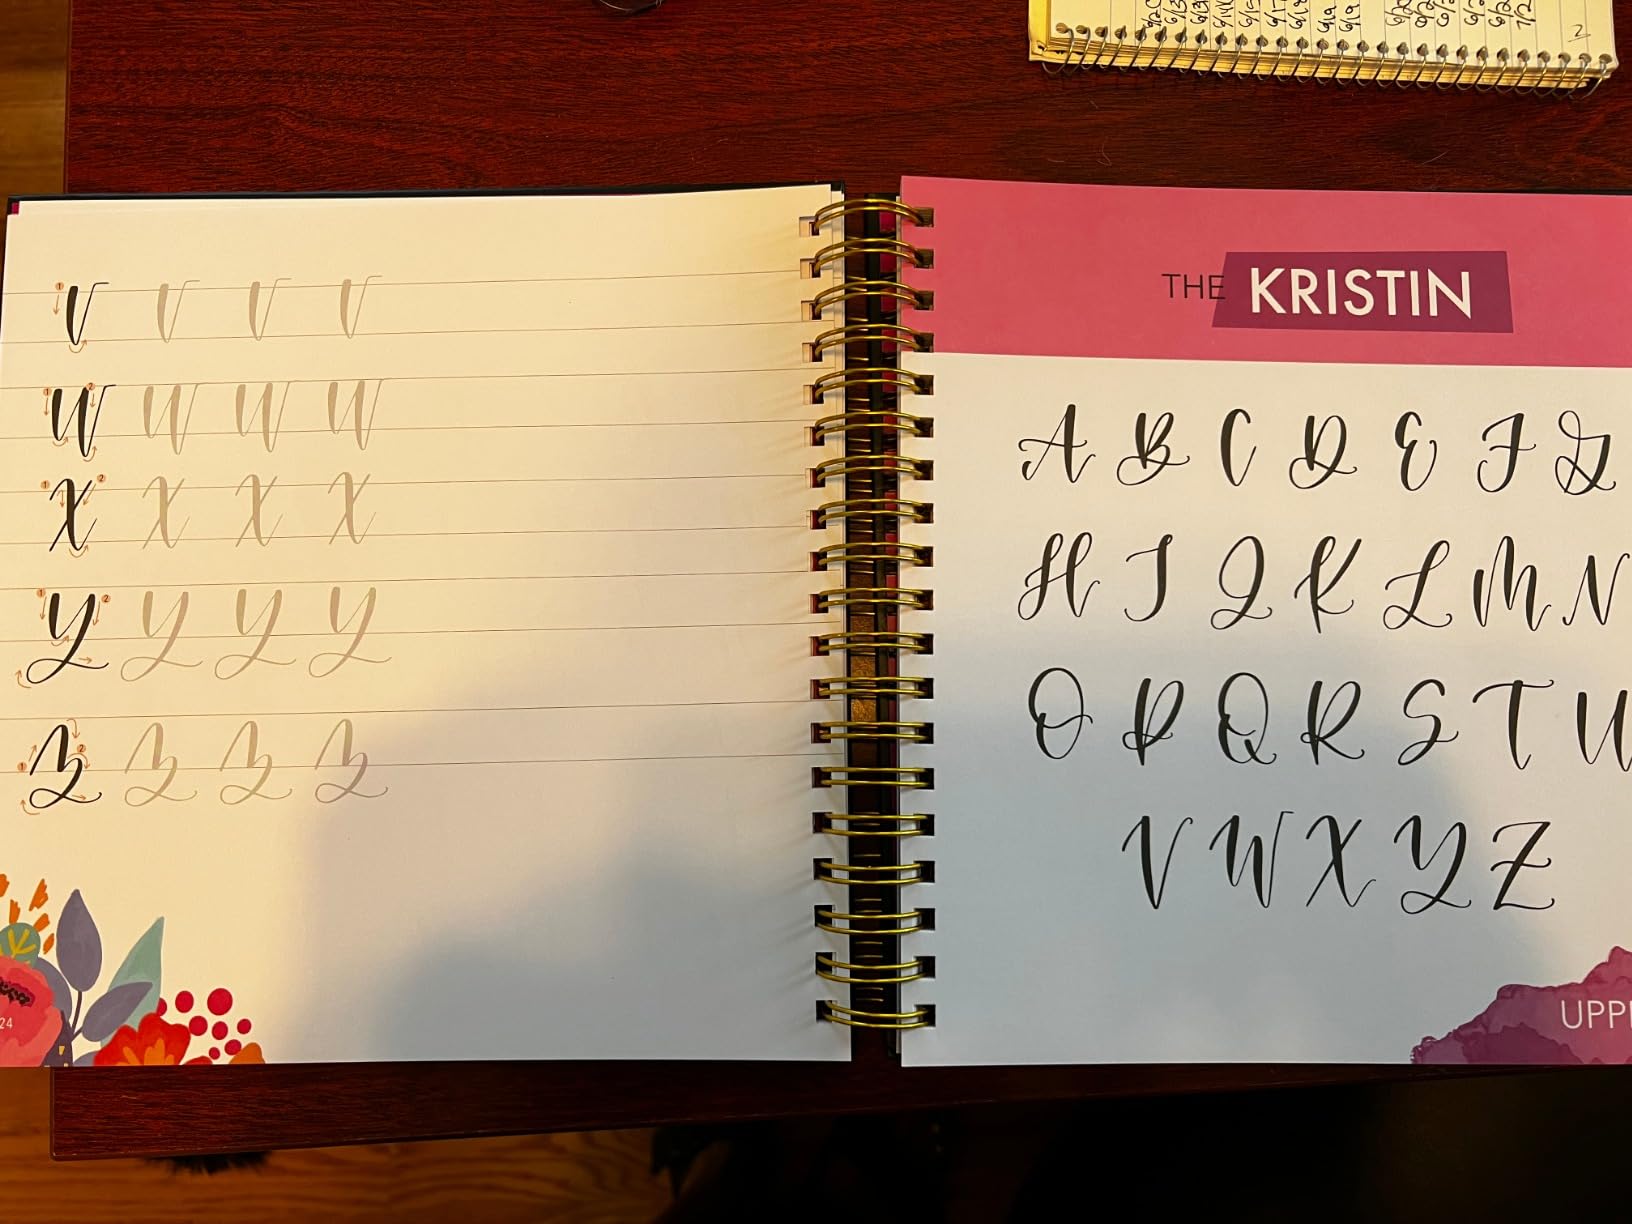 V V V V
W W W W
X X X X
Y Y Y Y
Z Z Z Z
24
THE KRISTIN
A B C D E F G
H I J K L M N
O P Q R S T U
V W X Y Z
2